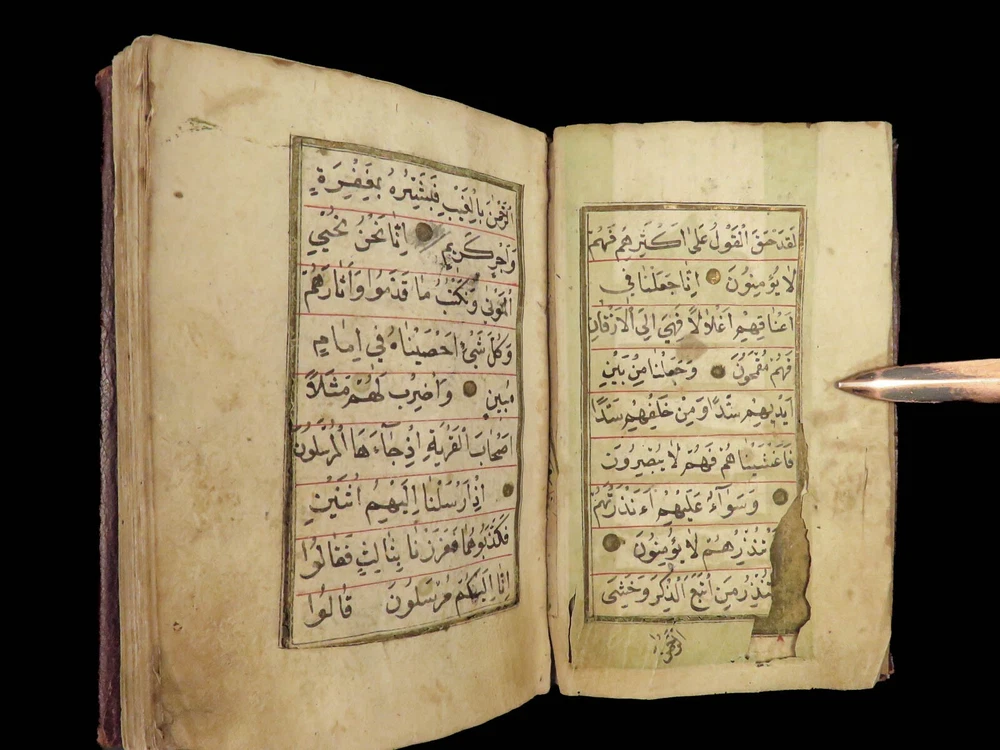 لَقَدْ حَقَّ الْقَوْلُ عَلٰى اَكْثَرِهِمْ فَهُمْ
لَا يُؤْمِنُونَ اِنَّا جَعَلْنَا فِي
اَعْنَاقِهِمْ اَغْلَالًا فَهِيَ اِلَى الْاَذْقَانِ
فَهُمْ مُقْمَحُونَ وَجَعَلْنَا مِنْ بَيْنِ
اَيْدِيهِمْ سَدًّا وَمِنْ خَلْفِهِمْ سَدًّا
فَاَغْشَيْنَاهُمْ فَهُمْ لَا يُبْصِرُونَ
وَسَوَآءٌ عَلَيْهِمْ ءَاَنْذَرْتَهُمْ
تُنْذِرْهُمْ لَا يُؤْمِنُونَ
تُنْذِرُ مَنِ اتَّبَعَ الذِّكْرَ وَخَشِيَ
الرَّحْمٰنَ
الرَّحْمٰنَ بِالْغَيْبِ فَبَشِّرْهُ بِمَغْفِرَةٍ
وَاَجْرٍ كَرِيمٍ اِنَّا نَحْنُ نُحْيِي
الْمَوْتٰى وَنَكْتُبُ مَا قَدَّمُوا وَاٰثَارَهُمْ
وَكُلَّ شَيْءٍ اَحْصَيْنَاهُ فِي اِمَامٍ
مُبِينٍ وَاضْرِبْ لَهُمْ مَثَلًا
اَصْحَابَ الْقَرْيَةِ اِذْ جَآءَهَا الْمُرْسَلُونَ
اِذْ اَرْسَلْنَا اِلَيْهِمُ اثْنَيْنِ
فَكَذَّبُوهُمَا فَعَزَّزْنَا بِثَالِثٍ فَقَالُوا
اِنَّا اِلَيْكُمْ مُرْسَلُونَ قَالُوا